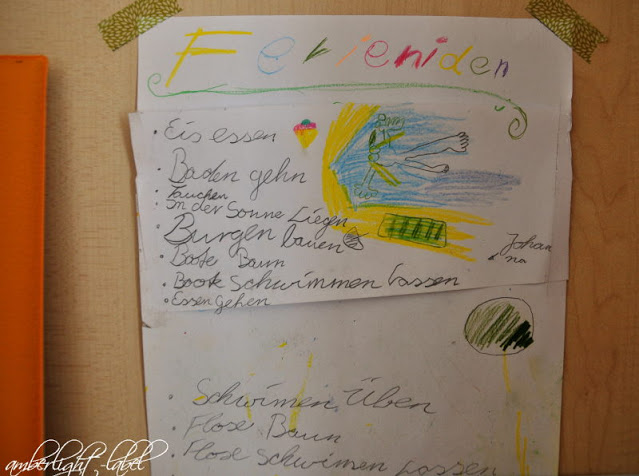 Ferieniden
• Eis essen
• Baden gehn
• Tauchen
• In der Sonne Liegen
• Burgen bauen
• Bote Baun
• Boote Schwimmen Lassen
• Essen gehen
Johan
na
• Schwimen Üben
• Flose Baun
• Flose Schwimsen Lassen
amberlight-label